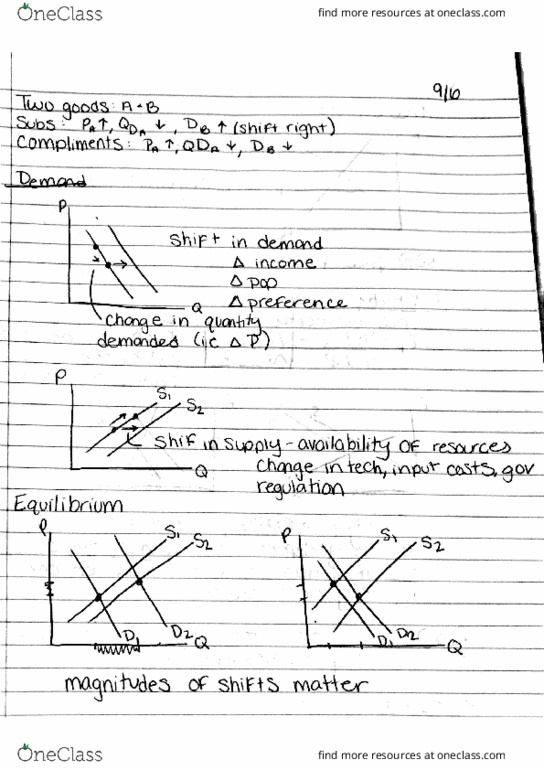 OneClass
find more resources at oneclass.com
9/6
Two goods: A + B
Subs: PA↑, QDA ↓, DB ↑ (shift right)
Compliments: PA ↑, QDA ↓, DB ↓
Demand
P
shift in demand
Δ income
Δ pop
Δ preference
Q
change in quantity
demanded (i.e. Δ P)
P
S1
S2
shif in supply - availability of resources
change in tech, input costs, gov
regulation
Q
Equilibrium
P
S1
S2
D1
D2
Q
P
S1
S2
D1
D2
Q
magnitudes of shifts matter
OneClass
find more resources at oneclass.com